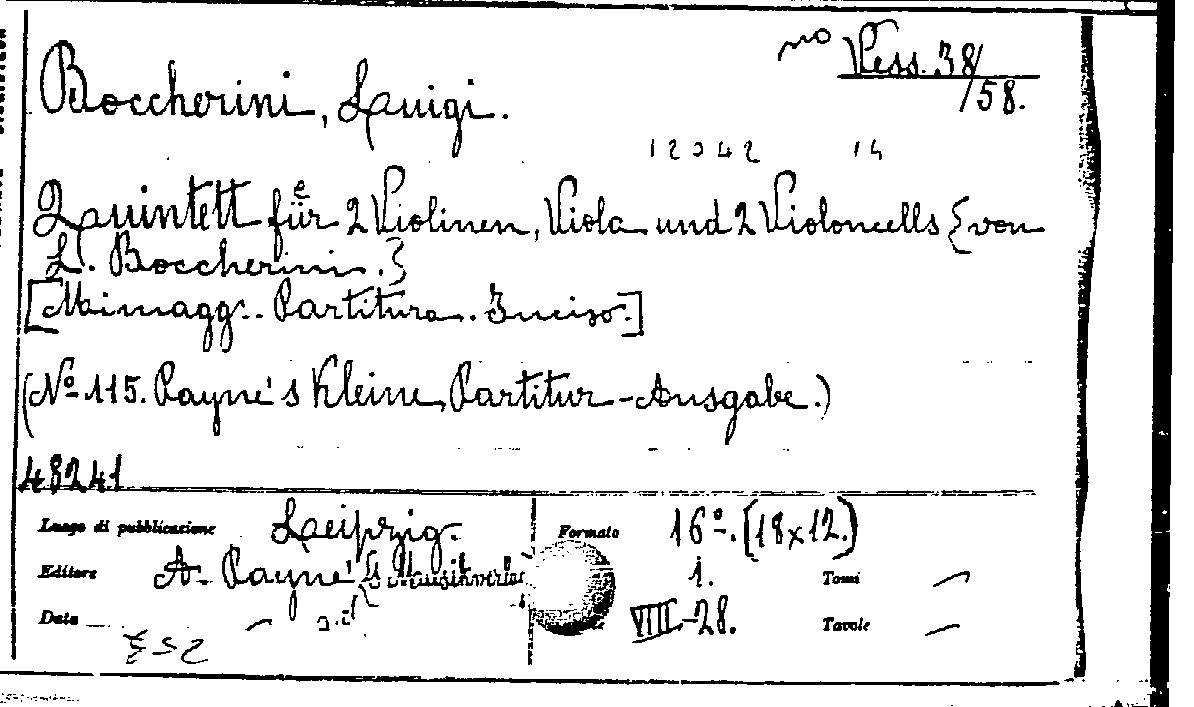 no Pess. 38/
/58.
Boccherini, Luigi.
12342 14
Quintett für 2 Violinen, Viola und 2 Violoncells {von
L. Boccherini.}
[Mi magg. Partitura. Inciso.]
(No 115. Payne's Kleine Partitur-Ausgabe.)
48241
Luogo di pubblicazione Leipzig. Formato 16o. (18x12.)
Editore A. Payne's Musikverlag 1. Tomi —
Data — VIII-28. Tavole —